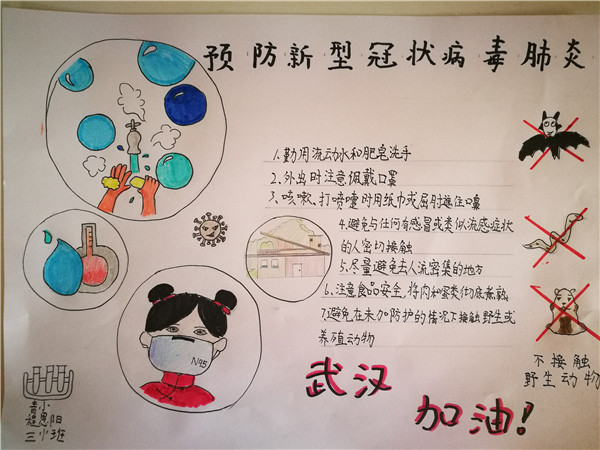 预防新型冠状病毒肺炎
1.勤用流动水和肥皂洗手
2.外出时注意佩戴口罩
3.咳嗽、打喷嚏时用纸巾或屈肘遮住口鼻
4.避免与任何有感冒或类似流感症状
的人密切接触
5.尽量避免去人流密集的地方
6.注意食品安全,将肉和蛋类彻底煮熟
7.避免在未加防护的情况下接触野生或
养殖动物
不接触
野生动物
N95
武汉
加油!